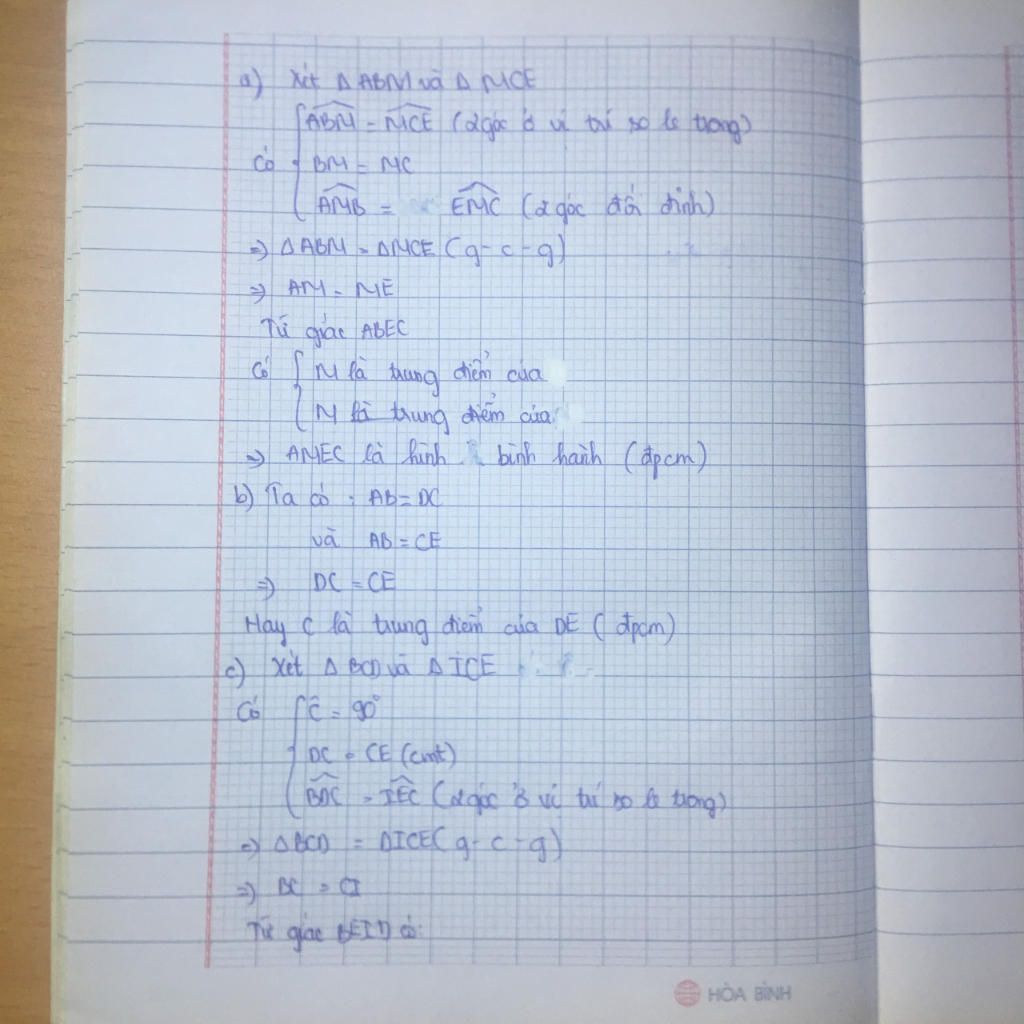 a) Xét Δ ABM và Δ MCE
ABM = MCE (2 góc ở vị trí so le trong)
Có BM = MC
AMB = EMC (2 góc đối đỉnh)
=> Δ ABM = ΔMCE (g-c-g)
=> AM = ME
Tứ giác ABEC
Có M là trung điểm của
M là trung điểm của
=> AMEC là hình bình hành (đpcm)
b) Ta có : AB = DC
và AB = CE
=> DC = CE
Hay C là trung điểm của DE (đpcm)
c) Xét Δ BCD và Δ ICE
Có Ĉ = 90°
DC = CE (cmt)
BDC = IEC (2 góc ở vị trí so le trong)
=> ΔBCD = ΔICE (g-c-g)
=> BC = CI
Tứ giác BEID có:
HÒA BÌNH